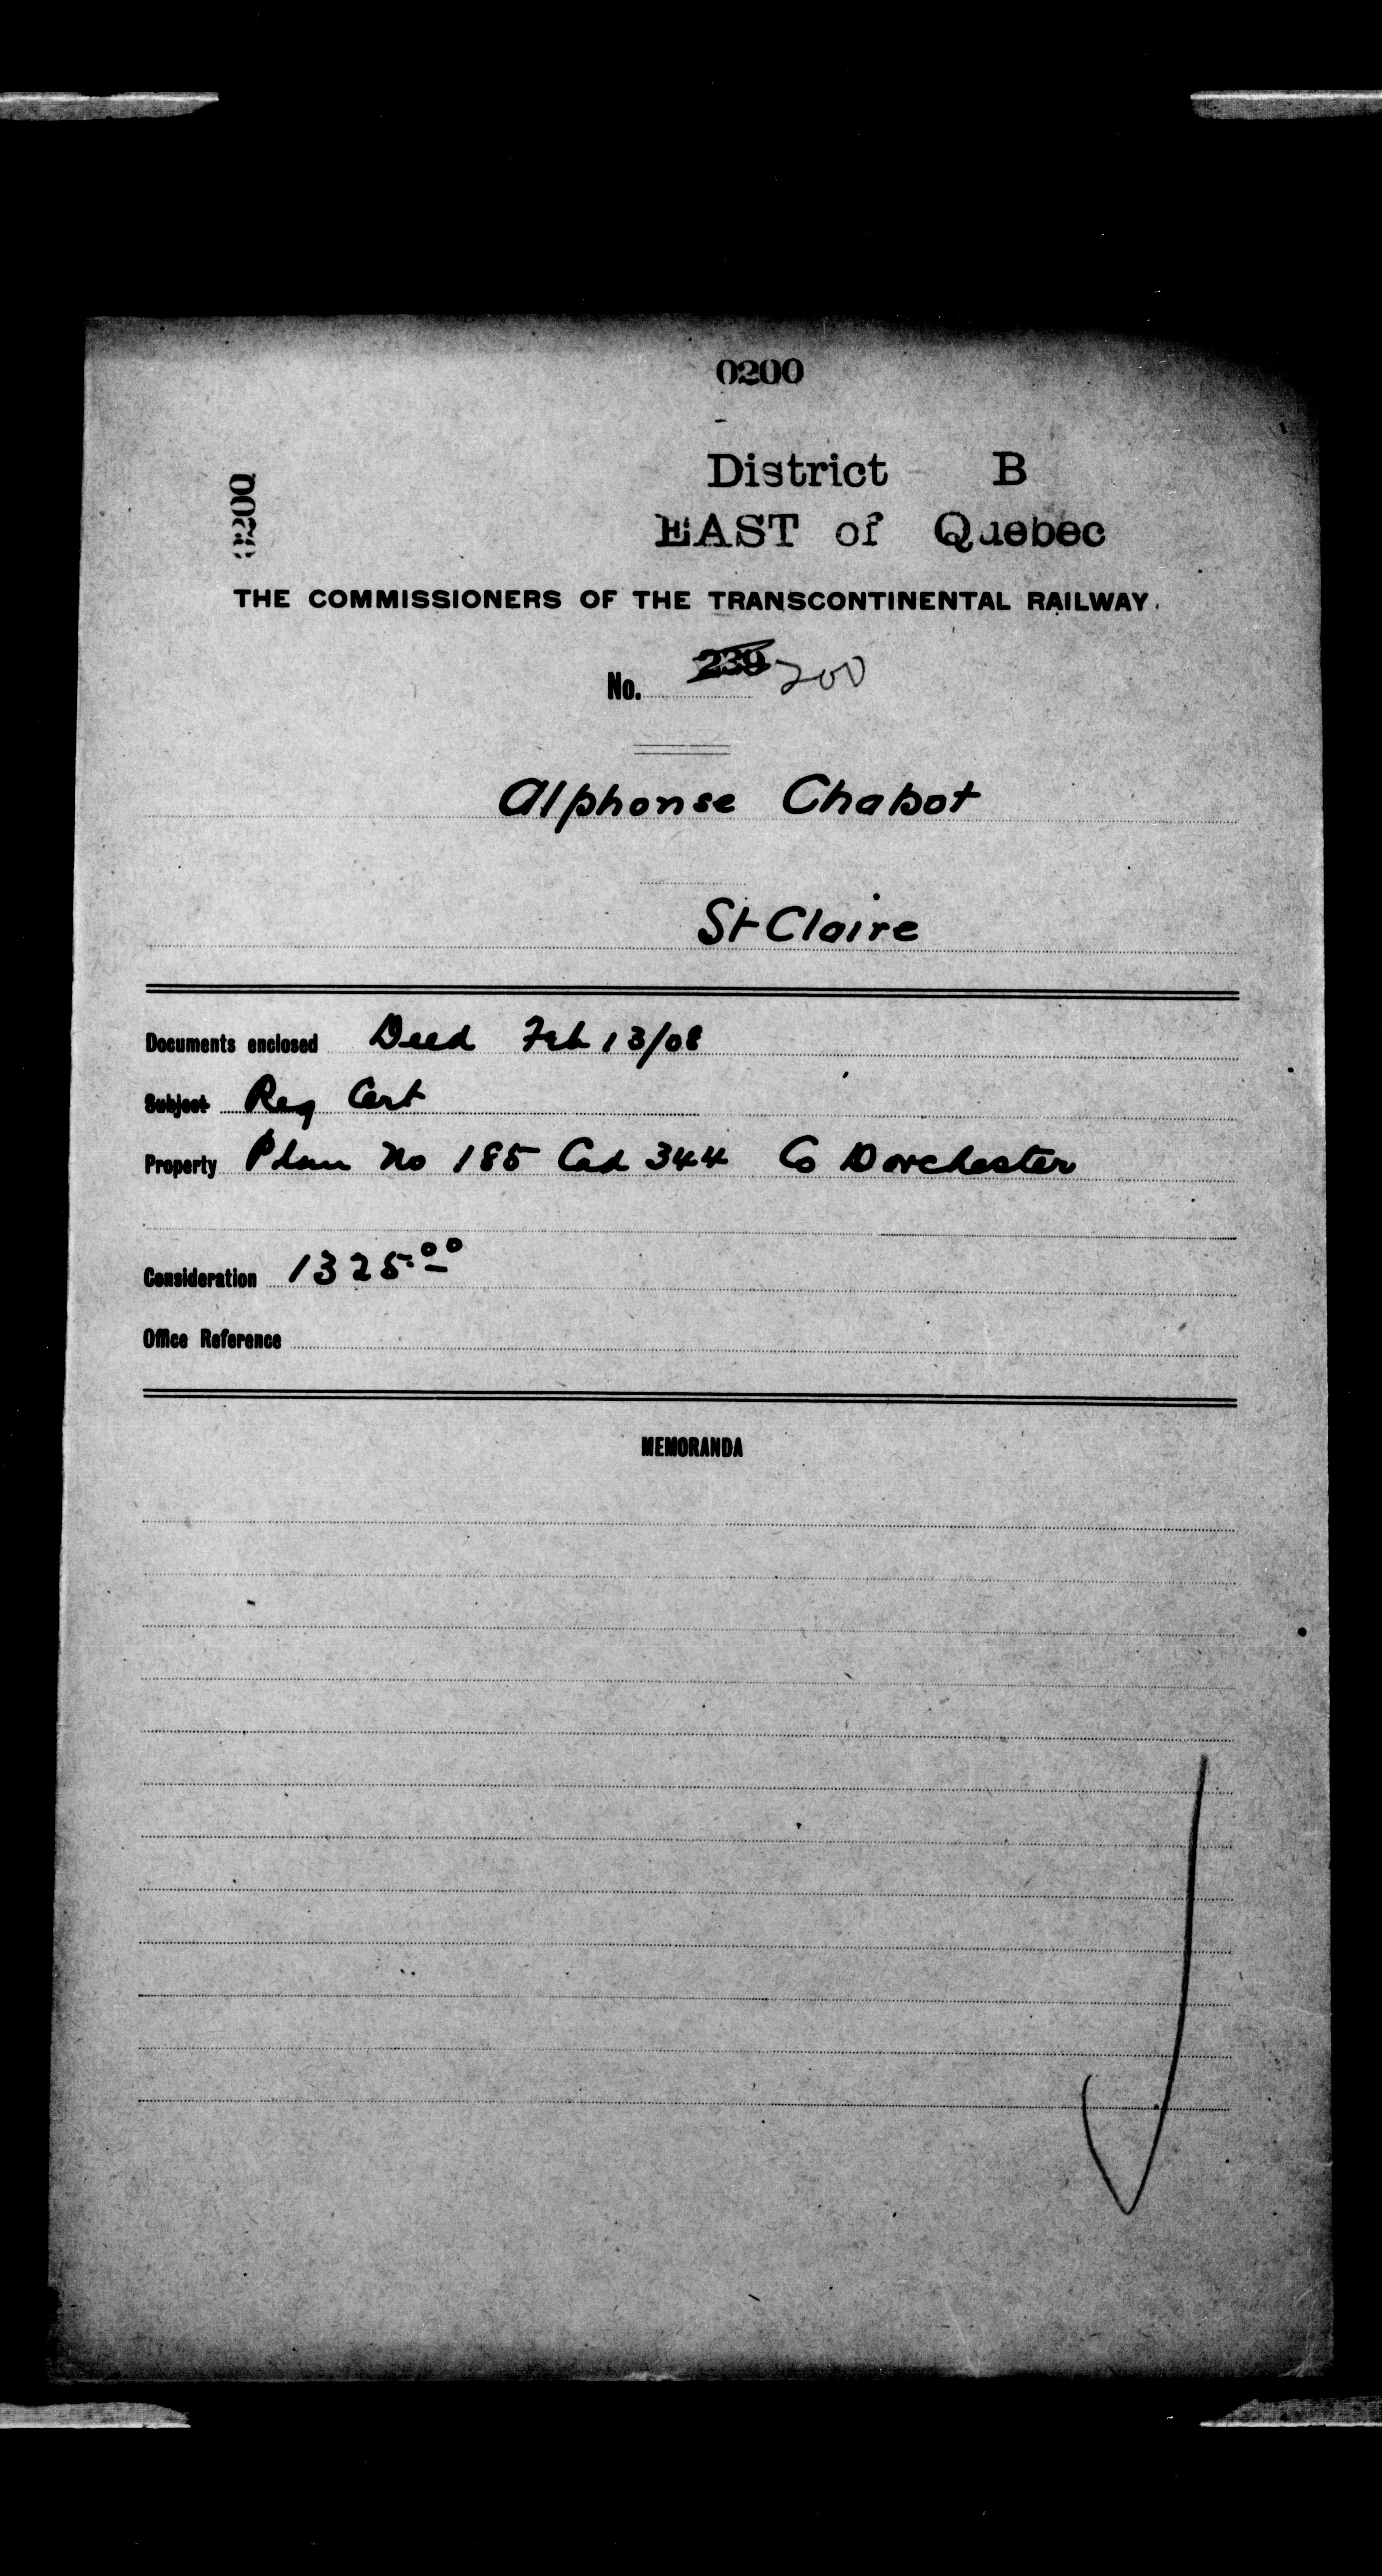 0200
District B
EAST of Quebec
0200
THE COMMISSIONERS OF THE TRANSCONTINENTAL RAILWAY.
No. 239 200
Alphonse Chabot
St Claire
Documents enclosed Deed Feb 13/08
Subject Reg Cert
Property Plan No 185 Cad 344 Co Dorchester
Consideration 1325.00
Office Reference
MEMORANDA